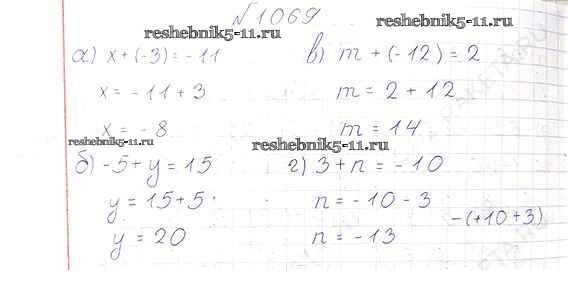 №1069
reshebnik5-11.ru
reshebnik5-11.ru
а) x + (-3) = -11
x = -11 + 3
x = -8
reshebnik5-11.ru
б) -5 + y = 15
y = 15 + 5
y = 20
в) m + (-12) = 2
m = 2 + 12
m = 14
reshebnik5-11.ru
г) 3 + n = -10
n = -10 - 3
-(+10+3)
n = -13